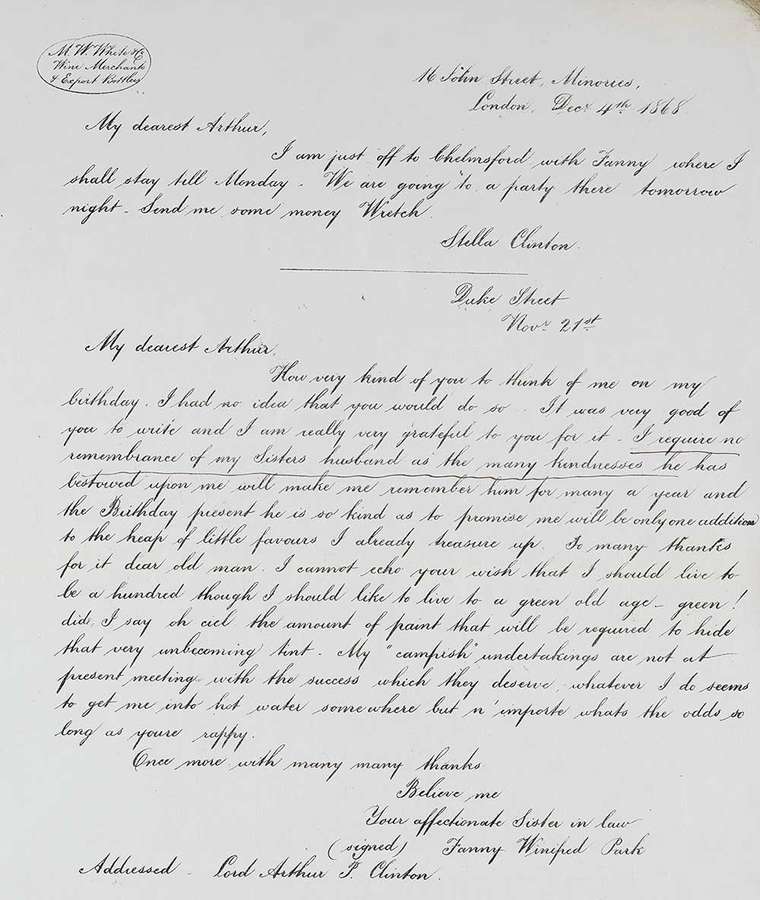 M. W. White & Co
Wine Merchants
& Export Bottlers
16 John Street, Minories,
London, Decr 4th 1868.
My dearest Arthur,
I am just off to Chelmsford with Fanny where I
shall stay till Monday. We are going to a party there tomorrow
night. Send me some money Wretch.
Stella Clinton.
Duke Street
Novr 21st
My dearest Arthur.
How very kind of you to think of me on my
birthday. I had no idea that you would do so. It was very good of
you to write and I am really very grateful to you for it. I require no
remembrance of my Sisters husband as the many kindnesses he has
bestowed upon me will make me remember him for many a year and
the Birthday present he is so kind as to promise me will be only one addition
to the heap of little favours I already treasure up. So many thanks
for it dear old man. I cannot echo your wish that I should live to
be a hundred though I should like to live to a green old age – green!
did, I say oh ciel the amount of paint that will be required to hide
that very unbecoming tint. My "campish" undertakings are not at
present meeting with the success which they deserve, whatever I do seems
to get me into hot water somewhere but n'importe whats the odds so
long as youre rappy.
Once more with many many thanks
Believe me
Your affectionate Sister in law
(signed) Fanny Winifred Park
Addressed – Lord Arthur P. Clinton.